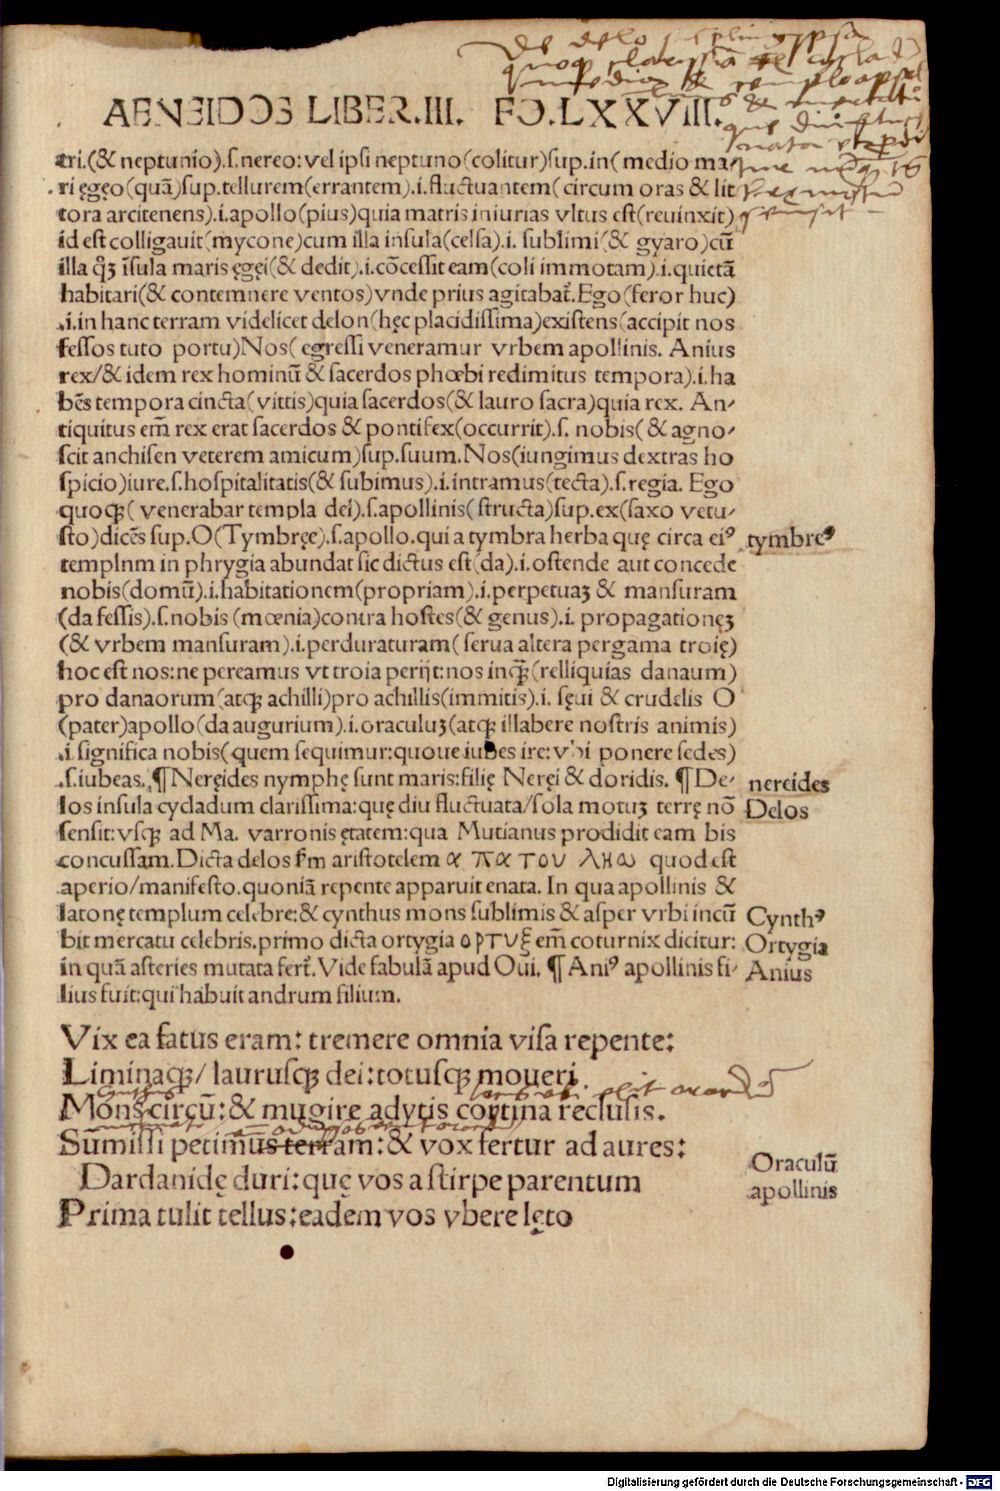 AENEIDOS LIBER.III. FO.LXXVIII.
tri.(& neptunio).s.nereo: vel ipsi neptuno(colitur)sup.in( medio ma
ri ęgęo(quā)sup.tellurem(errantem).i.fluctuantem( circum oras & lit
tora arcitenens).i.apollo(pius)quia matris iniurias vltus est(reuinxit)
id est colligauit(mycone)cum illa insula(celsa).i. sublimi(& gyaro)cū
illa qꝫ īsula maris ęgęi(& dedit).i.cōcessit eam(coli immotam).i.quietā
habitari(& contemnere ventos)vnde prius agitabat̄. Ego(feror huc)
.i.in hanc terram videlicet delon(hęc placidissima)existens(accipit nos
fessos tuto portu)Nos( egressi veneramur vrbem apollinis. Anius
rex/& idem rex hominū & sacerdos phœbi redimitus tempora).i.ha
bēs tempora cincta(vittis)quia sacerdos(& lauro sacra)quia rex. An-
tiquitus em̄ rex erat sacerdos & pontifex(occurrit).s. nobis( & agno-
scit anchisen veterem amicum)sup.suum.Nos(iungimus dextras ho
spicio)iure.s.hospitalitatis(& subimus).i.intramus(tecta).s.regia. Ego
quoqꝫ( venerabar templa dei).s.apollinis( structa)sup.ex(saxo vetu-
sto)dicēs sup.O(Tymbręe).s.apollo.qui a tymbra herba quę circa eiꝰ
templnm in phrygia abundat sic dictus est(da).i.ostende aut concede
nobis(domū).i.habitationem(propriam).i.perpetuaꝫ & mansuram
(da fessis).s.nobis (mœnia)contra hostes(& genus).i. propagationęꝫ
(& vrbem mansuram).i.perduraturam( serua altera pergama troię)
hoc est nos:ne pereamus vt troia perijt:nos inqꝫ(relliquias danaum)
pro danaorum(atqꝫ achilli)pro achillis(immitis).i. sęui & crudelis O
(pater)apollo(da augurium).i.oraculuꝫ(atqꝫ illabere nostris animis)
.i significa nobis(quem sequimur:quoue iubes ire: vbi ponere sedes)
.s.iubeas. ¶ Neręides nymphę sunt maris:filię Neręi & doridis. ¶ De-
los insula cycladum clarissima:quę diu fluctuata/sola motuꝫ terrę nō
sensit:vsqꝫ ad Ma. varronis ętatem:qua Mutianus prodidit eam bis
concussam.Dicta delos fm̄ aristotelem α πατου ληω quod est
aperio/manifesto.quoniā repente apparuit enata. In qua apollinis &
latonę templum celebre:& cynthus mons sublimis & asper vrbi incū
bit mercatu celebris.primo dicta ortygia ορτυξ em̄ coturnix dicitur:
in quā asteries mutata fert̄. Vide fabulā apud Oui. ¶ Aniꝰ apollinis fi-
lius fuit:qui habuit andrum filium.
tymbreꝰ
nereides
Delos
Cynthꝰ
Ortygia
Anius
Vix ea fatus eram: tremere omnia visa repente:
Liminaqꝫ/ laurusqꝫ dei:totusqꝫ moueri
Mons circū:& mugire adytis cortina reclusis.
Sūmissi petimus terram:& vox fertur ad aures:
Dardanidę duri:quę vos a stirpe parentum
Prima tulit tellus:eadem vos vbere lęto
Oraculū
apollinis
Digitalisierung gefördert durch die Deutsche Forschungsgemeinschaft - DFG